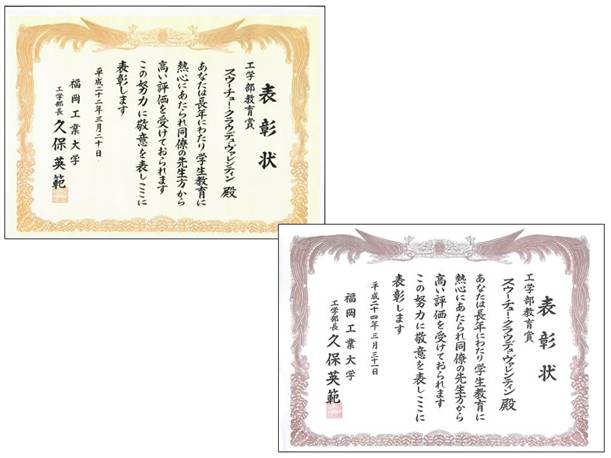 表彰状
工学部教育賞
スウーチュー・クラウデュ・ヴァレンティン 殿
あなたは長年にわたり学生教育に
熱心にあたられ同僚の先生方から
高い評価を受けておられます
この努力に敬意を表しここに
表彰します
平成二十二年三月二十日
福岡工業大学
工学部長 久保英範
表彰状
工学部教育賞
スウーチュー・クラウデュ・ヴァレンティン 殿
あなたは長年にわたり学生教育に
熱心にあたられ同僚の先生方から
高い評価を受けておられます
この努力に敬意を表しここに
表彰します
平成二十四年三月
福岡工業大学
工学部長 久保英範